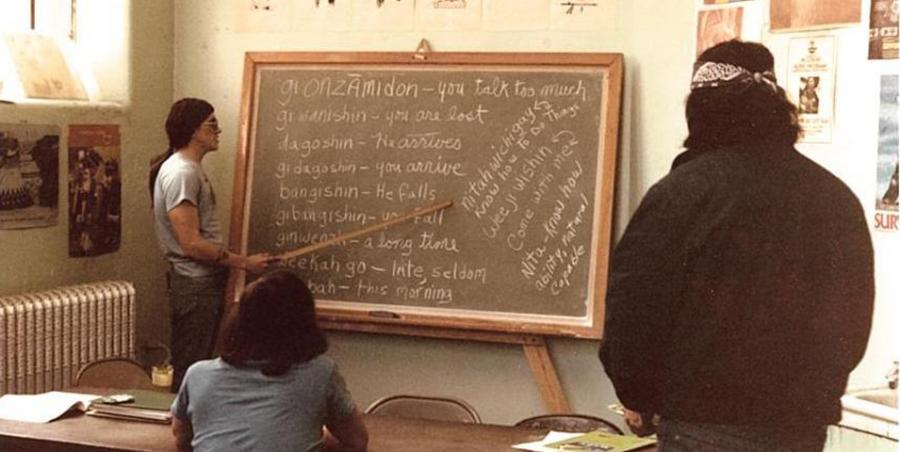 gi onzāmidon – you talk too much
gi wanishin – you are lost
dagoshin – He arrives
gi dagoshin – you arrive
bangishin – He falls
gibangishin – you fall
ginwenzh – a long time
eekah go – late, seldom
bah – this morning
nitah wichigay to
Know how to Do Things
Weeji wishin
Come with me
Nita – know how
ability, natural
Capable
SUR